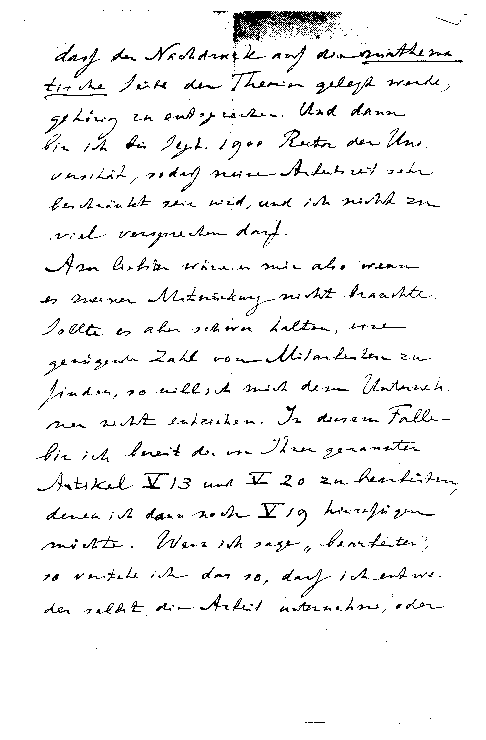 daß der Nachdruck auf die mathema
tische Seite der Theorien gelegt werde,
gehörig zu entsprechen. Und dann
bin ich bis Sept. 1900 Rector der Uni
versität, sodaß meine Arbeitszeit sehr
beschränkt sein wird, und ich nicht zu
viel versprechen darf.
Am liebsten wäre es mir also wenn
es meiner Mitwirkung nicht brauchte.
Sollte es aber schwer halten, eine
genügende Zahl von Mitarbeitern zu
finden, so will ich mich dem Unterneh
men nicht entziehen. In diesem Falle
bin ich bereit die von Ihnen genannten
Artikel V 13 und V 20 zu bearbeiten,
denen ich dann noch V 19 hinzufügen
möchte. Wenn ich sage „bearbeiten",
so verstehe ich das so, daß ich entwe
der selbst die Arbeit unternehme, oder